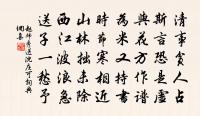 清事貧人占
斯言恐是虛
與花方作譜
為米又持書
時節寒相近
山林拙未除
西江波浪急
送子一愁予
趙師秀送沈庄可詞典
網喜